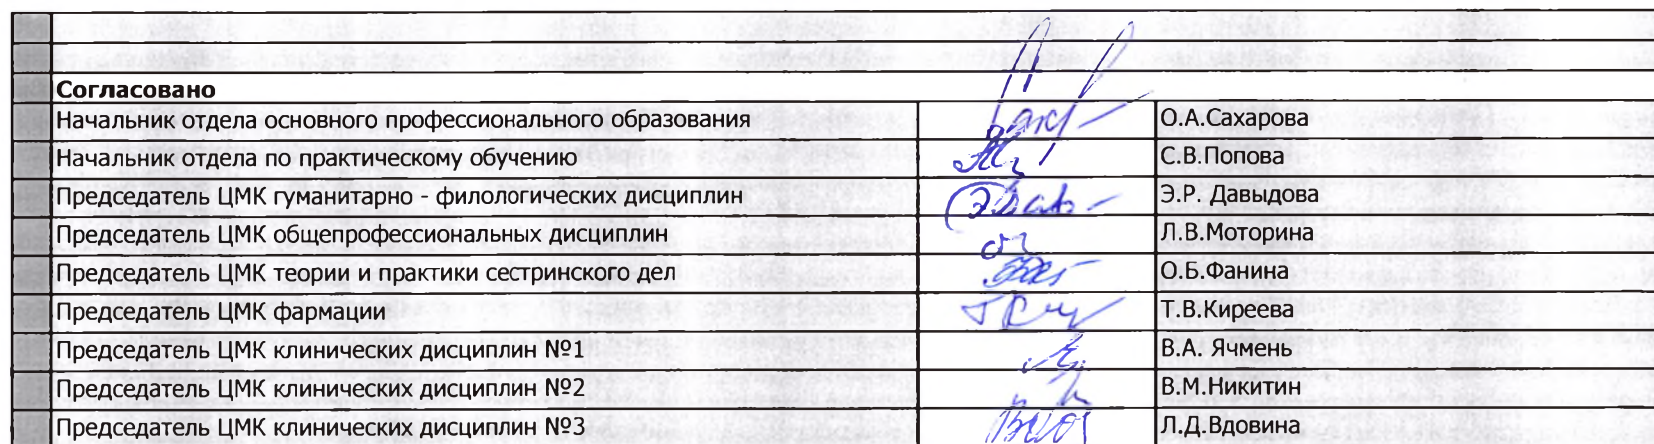 Согласовано
Начальник отдела основного профессионального образования О.А.Сахарова
Начальник отдела по практическому обучению С.В.Попова
Председатель ЦМК гуманитарно - филологических дисциплин Э.Р. Давыдова
Председатель ЦМК общепрофессиональных дисциплин Л.В.Моторина
Председатель ЦМК теории и практики сестринского дел О.Б.Фанина
Председатель ЦМК фармации Т.В.Киреева
Председатель ЦМК клинических дисциплин №1 В.А. Ячмень
Председатель ЦМК клинических дисциплин №2 В.М.Никитин
Председатель ЦМК клинических дисциплин №3 Л.Д.Вдовина